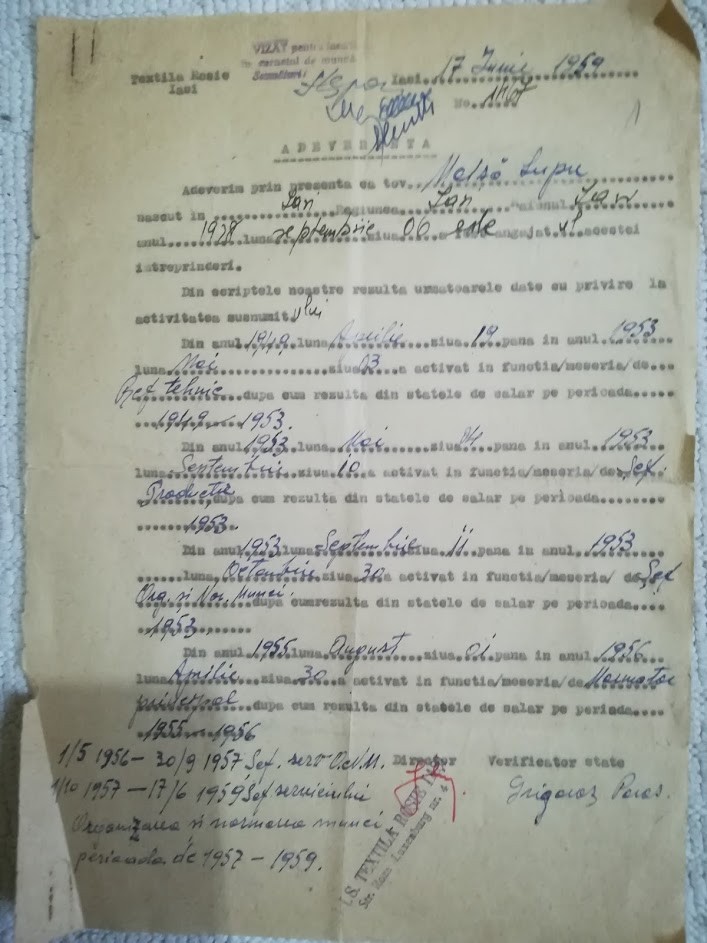 VIZAT pentru
in carnetul de munca
Semnatura:
Textila Rosie
Iasi
Iasi..17 Iunie 1959
No.
ADEVERINTA
Adeverim prin prezenta ca tov. Lupu
nascut in Iasi Regiunea Iasi Raionul Iasi
anul luna septembrie ziua 06 este angajat al acestei
intreprinderi.
Din scriptele noastre rezulta urmatoarele date cu privire la
activitatea susnumitului
Din anul 1949 luna Aprilie ziua 19 pana in anul 1953
luna Mai ziua 03 a activat in functia/meseria/de
Ref tehnic dupa cum rezulta din statele de salar pe perioada
1949 - 1953.
Din anul 1953 luna Mai ziua 04 pana in anul 1953
luna Septembrie ziua 10 a activat in functia/meseria/de Sef
Productie dupa cum rezulta din statele de salar pe perioada
1953
Din anul 1953 luna Septembrie ziua 11 pana in anul 1953
luna Octombrie ziua 30 a activat in functia/meseria/ de Sef
Org. si Nor. Munci. dupa cumrezulta din statele de salar pe perioada
1953
Din anul 1955 luna August ziua 01 pana in anul 1956
luna Aprilie ziua 30 a activat in functia/meseria/de Normator
principal dupa cum rezulta din statele de salar pe perioada
1955 - 1956
1/5 1956 - 30/9 1957 Sef. serv O.N.M. Director Verificator state
1/10 1957 - 17/6 1959 Sef serviciului Grigoraș
Organizarea si normarea munci
perioada de 1957 - 1959.
I.S. TEXTILA ROSIE
Str. Roza Luxemburg nr. 4